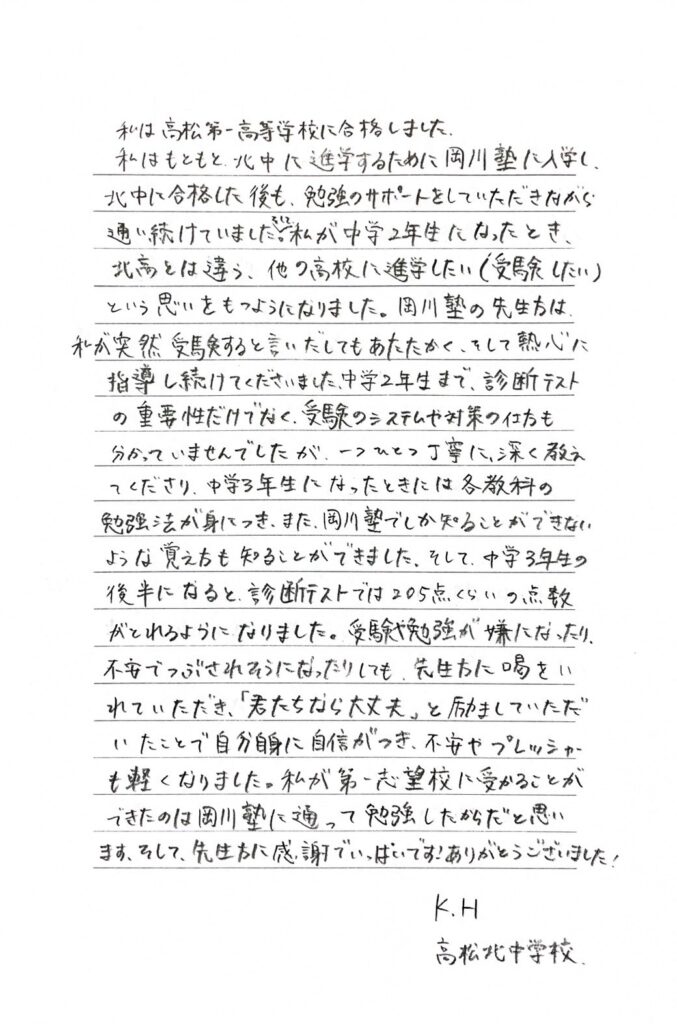 私は高松第一高等学校に合格しました。
私はもともと、北中に進学するために岡川塾に入学し、
北中に合格した後も、勉強のサポートをしていただきながら
通い続けていました。私が中学2年生になったとき、
北高とは違う、他の高校に進学したい(受験したい)
という思いをもつようになりました。岡川塾の先生方は、
私が突然受験すると言いだしてもあたたかく、そして熱心に
指導し続けてくださいました。中学2年生まで、診断テスト
の重要性だけでなく、受験のシステムや対策の仕方も
分かっていませんでしたが、一つひとつ丁寧に、深く教え
てくださり、中学3年生になったときには各教科の
勉強法が身につき、また、岡川塾でしか知ることができない
ような覚え方も知ることができました。そして、中学3年生の
後半になると、診断テストでは205点くらいの点数
がとれるようになりました。受験や勉強が嫌になったり、
不安でつぶされそうになったりしても、先生方に喝をい
れていただき、「君たちなら大丈夫」と励ましていただ
いたことで自分自身に自信がつき、不安やプレッシャー
も軽くなりました。私が第一志望校に受かることが
できたのは岡川塾に通って勉強したからだと思い
ます。そして、先生方に感謝でいっぱいです!ありがとうございました!
K.H
高松北中学校.